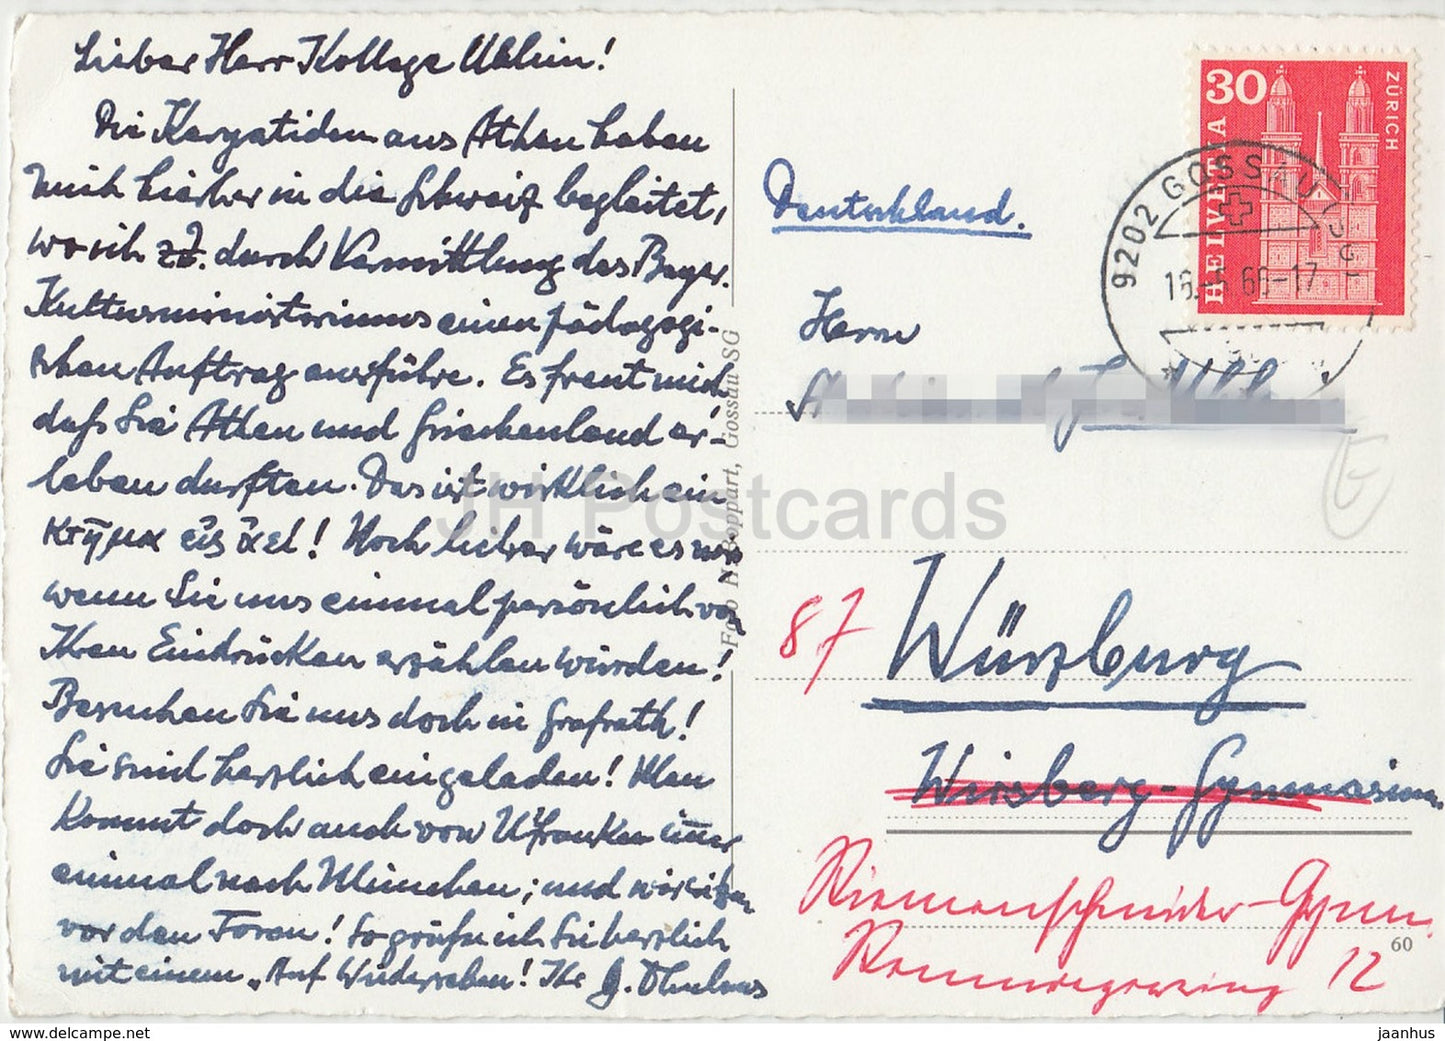 Lieber Herr Kollege Uhlein!
Die Karyatiden aus Athen haben
mich hierher in die Schweiz begleitet,
wo ich z.Z. durch Vermittlung des Bayer.
Kultusministeriums einen pädagogi-
schen Auftrag ausführe. Es freut mich,
daß Sie Athen und Griechenland er-
leben durften. Das ist wirklich ein
κτῆμα εἰς ἀεί! Noch lieber wäre es uns
wenn Sie uns einmal persönlich von
Ihren Eindrücken erzählen würden!
Besuchen Sie uns doch in Grafrath!
Sie sind herzlich eingeladen! Man
kommt doch auch von U'franken immer
einmal nach München; und wir sitzen
vor den Toren! So grüße ich Sie herzlich
mit einem „Auf Wiedersehen! Ihr G.
Foto H. Boppart, Gossau SG
HELVETIA
30
ZÜRICH
9202 GOSSAU
Deutschland.
Herrn
87 Würzburg
Wirsberg-Gymnasium
Riemenschneider-Gymn.
Rennwegerring 12
60
JH Postcards
jaanhus
www.delcampe.net